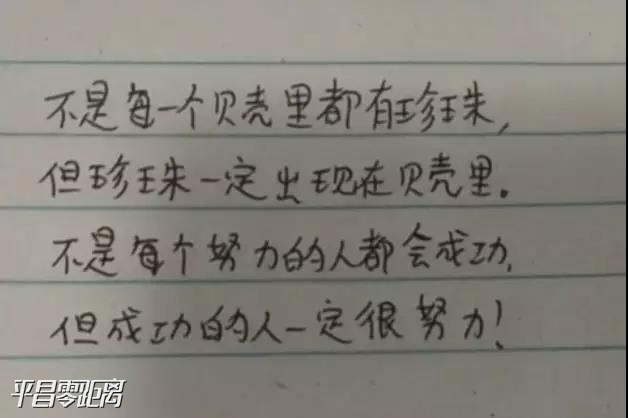 不是每一个贝壳里都有珍珠,
但珍珠一定出现在贝壳里。
不是每个努力的人都会成功,
但成功的人一定很努力!
平昌零距离